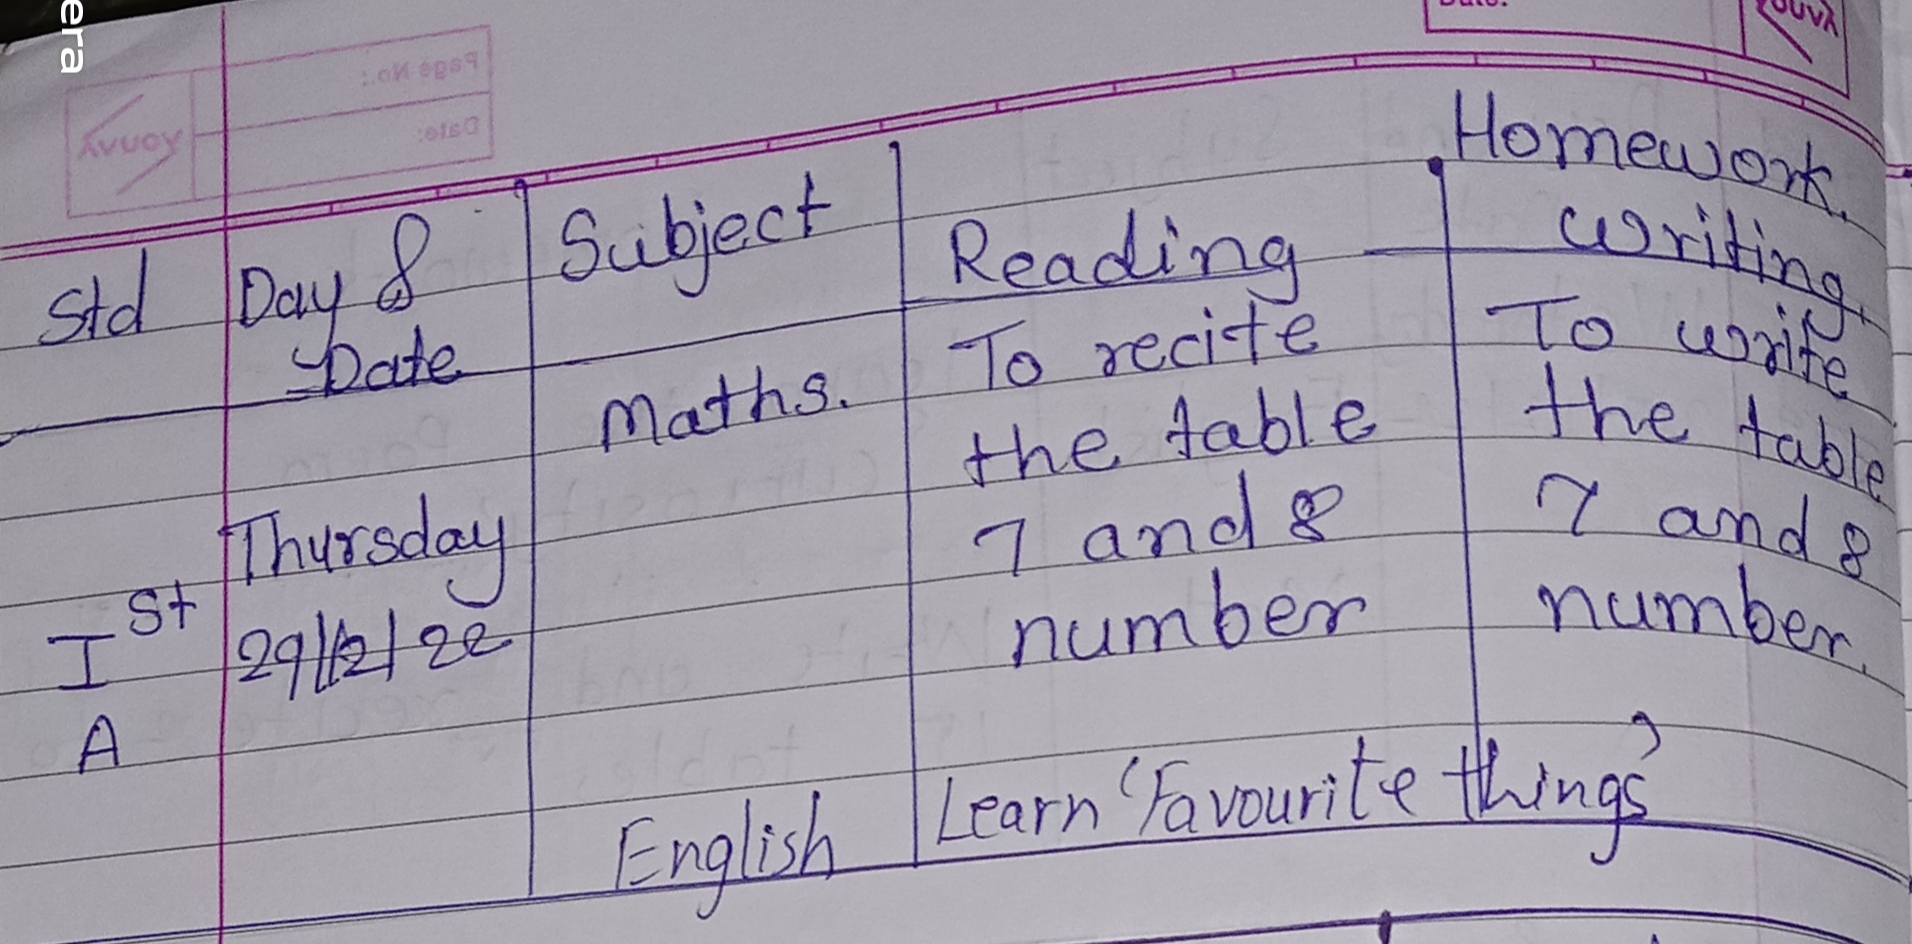 era
Page No.:
Date:
Homework.
Std Day & Date Subject Reading Writing.
Maths. To recite To write
the table the table
Thursday 7 and 8 7 and 8
Ist 29/12/22 number number.
A
English Learn 'Favourite things'